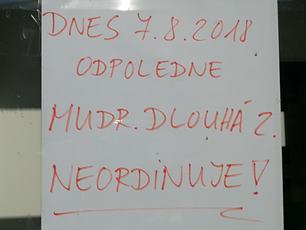 DNES 7.8.2018
ODPOLEDNE
MUDR. DLOUHÁ Z.
NEORDINUJE!